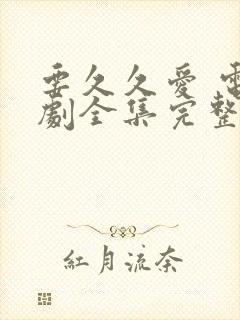 要久久爱 電
劇全集完整
紅月流奈